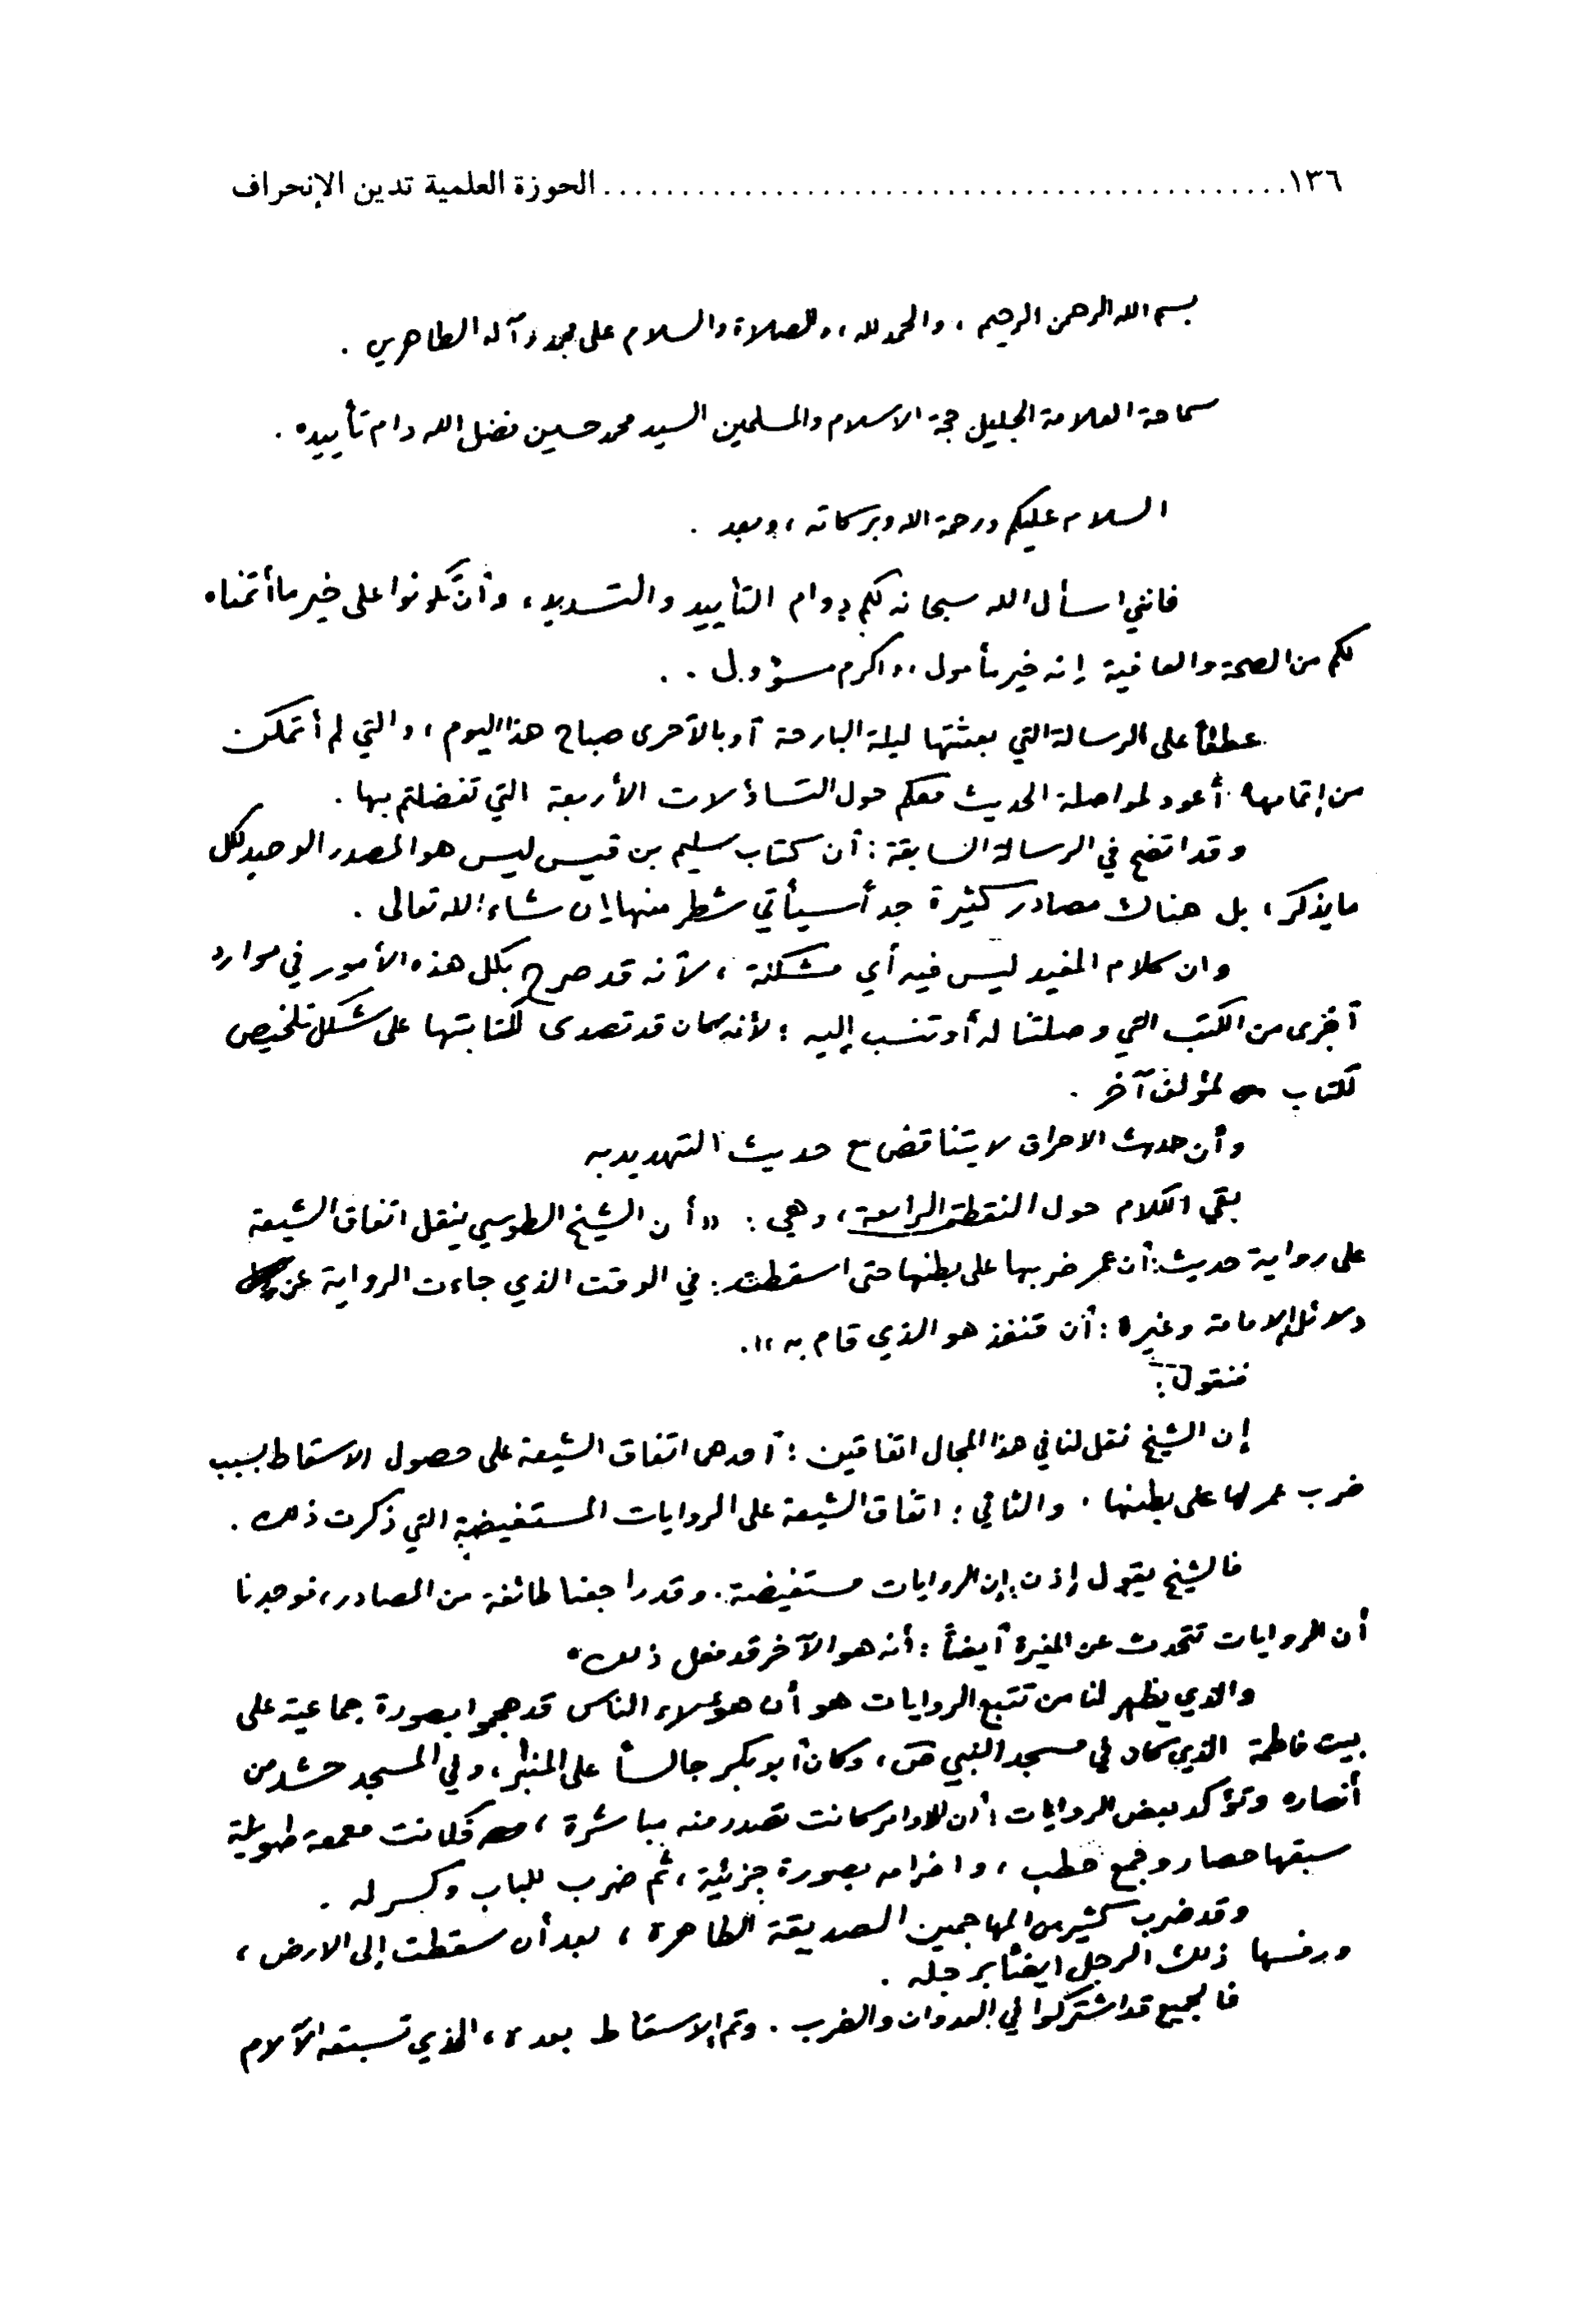 ١٣٦ ........................................... الحوزة العلمية تدين الإنحراف
بسم الله الرحمن الرحيم ، والحمد لله ، والصلاة والسلام على محمد وآله الطاهرين .
سماحة العلامة الجليل حجة الاسلام والمسلمين السيد محمد حسين فضل الله دام تأييده .
السلام عليكم ورحمة الله وبركاته ، وبعد .
فانني اسأل الله سبحانه لكم دوام التأييد والتسديد ، وأن تكونوا على خير ما أتمناه
لكم من الصحة والعافية إنه خير مأمول ، واكرم مسؤول . .
عطفاً على الرسالة التي بعثتها ليلة البارحة أو بالأحرى صباح هذا اليوم ، والتي لم أتمكن
من إتمامها أعود لمواصلة الحديث معكم حول التساؤلات الأربعة التي تفضلتم بها .
وقد اتضح في الرسالة السابقة : أن كتاب سليم بن قيس ليس هو المصدر الوحيد لكل
ما يذكر ، بل هناك مصادر كثيرة جداً سيأتي شطر منها إن شاء الله تعالى .
وان كلام المفيد ليس فيه أي مشكلة ، لأنه قد صرح بكل هذه الأمور في موارد
أخرى من الكتب التي وصلتنا له أو تنسب إليه ؛ لأنه كان قد تصدى لكتابتها على شكل تلخيص
لكتاب لمؤلف آخر .
وأن حدث الاحراق لا يتناقض مع حديث التهديد به
بقي الكلام حول النقطة الرابعة ، وهي : «أن الشيخ الطوسي ينقل اتفاق الشيعة
على رواية حديث : أن عمر ضربها على بطنها حتى اسقطت : في الوقت الذي جاءت الرواية عن
دلائل الامامة وغيره : أن قنفذ هو الذي قام به» .
فنقول :
إن الشيخ نقل لنا في هذا المجال اتفاقين : أحدهما اتفاق الشيعة على حصول الاسقاط بسبب
ضرب عمر لها على بطنها . والثاني : اتفاق الشيعة على الروايات المستفيضة التي ذكرت ذلك .
فالشيخ يقول إذن : إن الروايات مستفيضة . وقد راجعنا طائفة من المصادر ، فوجدنا
أن الروايات تتحدث عن المغيرة أيضاً : أنه هو الآخر قد فعل ذلك .
والذي يظهر لنا من تتبع الروايات هو أن هؤلاء الناس قد هجموا بصورة جماعية على
بيت فاطمة الذي كان في مسجد النبي ص ، وكان أبو بكر جالساً على المنبر ، وفي المسجد حشد من
أنصاره وتؤكد بعض الروايات : أن الاوامر كانت تصدر منه مباشرة ، فكانت معمعة طويلة
سبقها حصار وجمع حطب ، واضرامه بصورة جزئية ، ثم ضرب للباب وكسر له .
وقد ضرب كثير من المهاجمين الصديقة الطاهرة ، بعد أن سقطت إلى الارض ،
ورفسها ذلك الرجل ايضاً برجله .
فالجميع قد اشتركوا في العدوان والضرب . وتم الاسقاط بعده ، الذي تسبقه الآلام